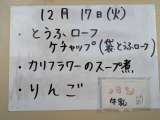 12月17日(火)
・とうふローフ
ケチャップ(袋とうふローフ)
・カリフラワーのスープ煮
・りんご
牛乳